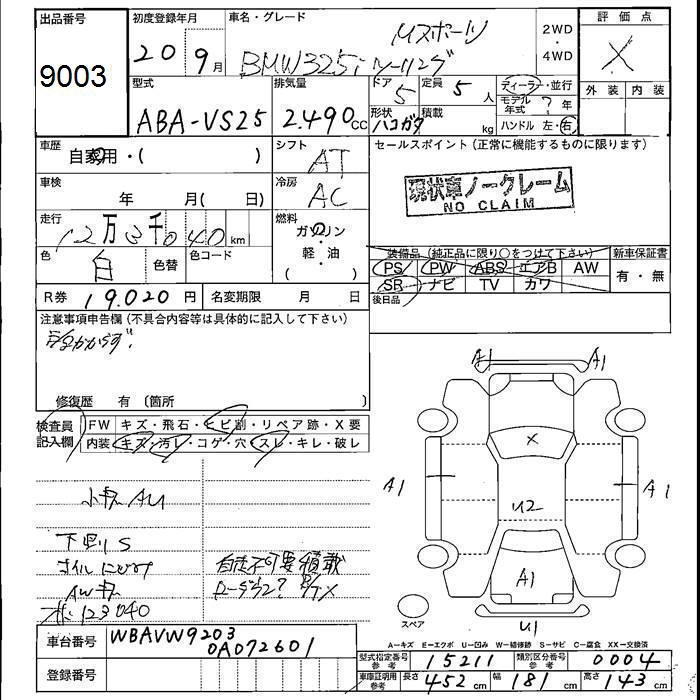 出品番号
9003
初度登録年月
20 9月
車名・グレード
Mスポーツ
BMW325i ツーリング
2WD
・
4WD
評価点
X
外装 内装
型式
ABA-VS25
排気量
2.490cc
ドア
5
形状
ハコガタ
定員
5人
積載
kg
ディーラー・並行
モデル年式 ?年
ハンドル 左・右
車歴
自家用・( )
シフト
AT
セールスポイント(正常に機能するものに限ります)
現状車ノークレーム
NO CLAIM
車検
年 月( 日)
冷房
AC
走行
12万3千040km
燃料
ガソリン
軽・油
( )
色
白
色替
色コード
装備品(純正品に限り○をつけて下さい)
PS PW ABS エアB AW
SR ナビ TV カワ
新車保証書
有・無
後日品
R券 19.020円
名変期限 月 日
注意事項申告欄(不具合内容等は具体的に記入して下さい)
修復歴 有 (箇所 )
検査員記入欄
FW キズ・飛石・ヒビ割・リペア跡・X要
内装 キズ・汚レ・コゲ・穴・スレ・キレ・破レ
小キズAU
下回りS
オイルにじみ
AWキズ
自走不可要積載
123040
A1 A1
X
A1
U2
A1
A1
スペア
U1
A=キズ E=エクボ U=凹み W=補修跡 S=サビ C=腐食 XX=交換済
車台番号
WBAVW9203
0A072601
登録番号
型式指定番号 参考 15211
類別区分番号 参考 0004
車庫証明用 参考 長さ 452cm 幅 181cm 高さ 143cm